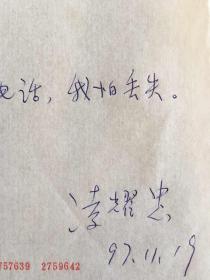 电话，我怕丢失。
凌耀忠
97.11.19
757639 2759642